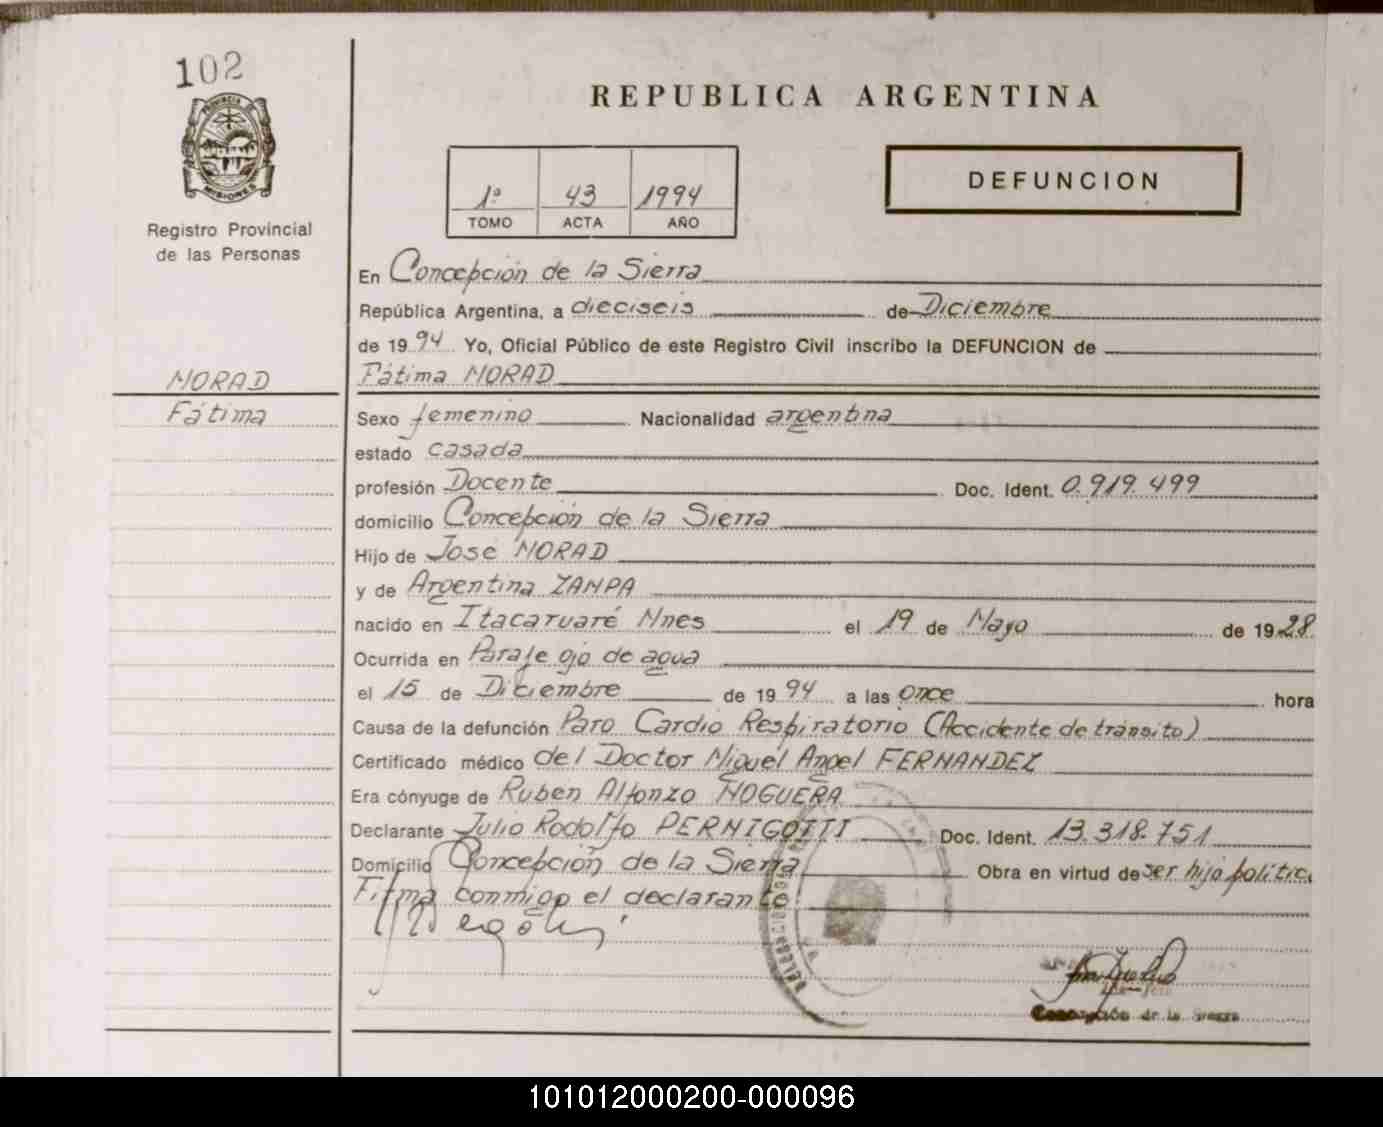 102
PROVINCIA DE
MISIONES
Registro Provincial
de las Personas
REPUBLICA ARGENTINA
1º 43 1994
TOMO ACTA AÑO
DEFUNCION
En Concepción de la Sierra
República Argentina, a dieciseis de Diciembre
de 1994 Yo, Oficial Público de este Registro Civil inscribo la DEFUNCION de
Fátima MORAD
MORAD
Fátima
Sexo femenino Nacionalidad argentina
estado casada
profesión Docente Doc. Ident. 0.919.499
domicilio Concepción de la Sierra
Hijo de José MORAD
y de Argentina ZAMPA
nacido en Itacaruaré Mnes el 19 de Mayo de 1928
Ocurrida en Paraje ojo de agua
el 15 de Diciembre de 1994 a las once hora
Causa de la defunción Paro Cardio Respiratorio (Accidente de tránsito)
Certificado médico del Doctor Miguel Angel FERNANDEZ
Era cónyuge de Ruben Alfonzo NOGUERA
Declarante Julio Rodolfo PERNIGOTTI Doc. Ident. 13.318.751
Domicilio Concepción de la Sierra Obra en virtud de ser hijo politic
Firma conmigo el declarante
Concepción de la Sierra
101012000200-000096